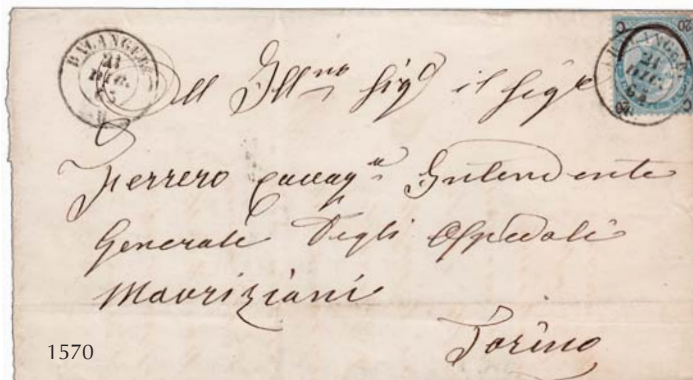 BALANGERO
21
DIC.
BALANGERO
21
DIC.
C 20
All Illmo Sigr il Sigr
Ferrero Intendente
Generale Degli Ospedali
Mauriziani
Torino
1570